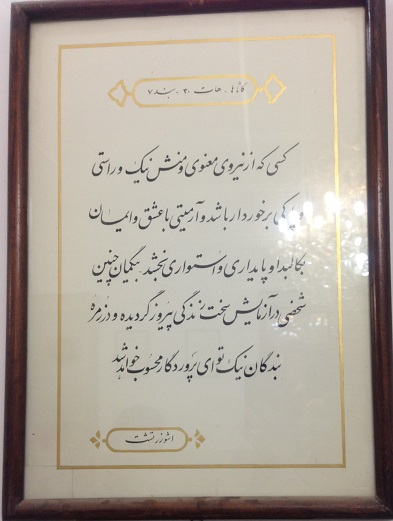 گاتاها . هات ۳۰ . بند ۷
کسی که از نیروی معنوی و منش نیک و راستی
و پاکی برخوردار باشد و آرمیتی با عشق و ایمان
بکالبد او پایداری و استواری بخشد بیگمان چنین
شخصی در آزمایش سخت زندگی پیروز گردیده و در زمره
بندگان نیک تو ای پروردگار محسوب خواهد شد
اشوزرتشت